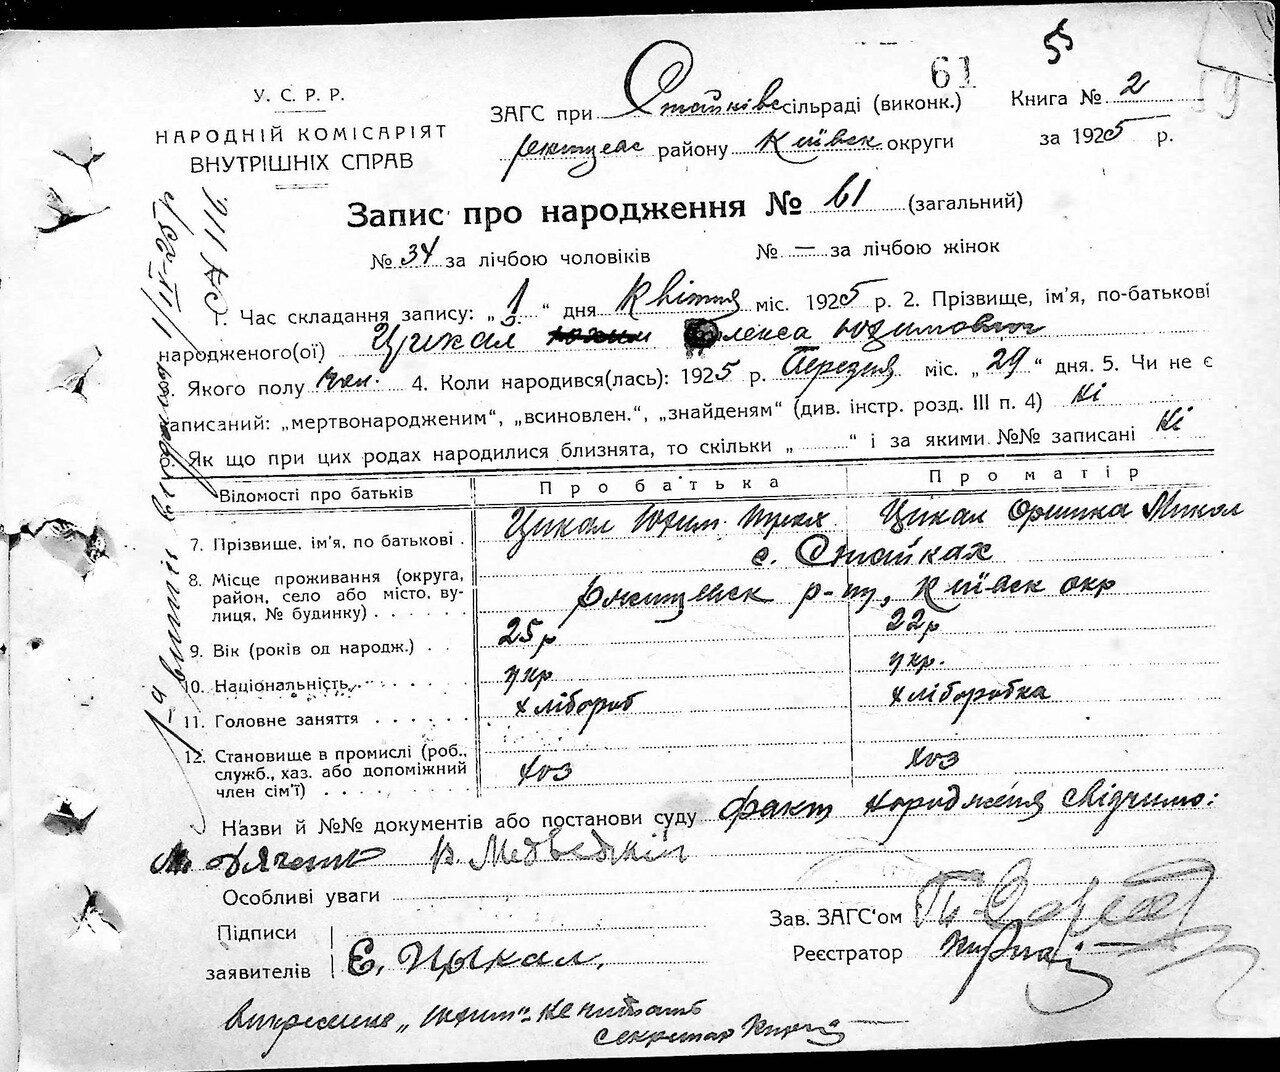 55
61
59
У. С. Р. Р.
НАРОДНІЙ КОМІСАРІЯТ
ВНУТРІШНІХ СПРАВ
ЗАГС при Стайківс сільраді (виконк.)
району Київск округи
Книга № 2
за 1925 р.
Запис про народження № 61 (загальний)
№ 34 за лічбою чоловіків № — за лічбою жінок
1. Час складання запису: „ 1 “ дня Квітня міс. 1925 р. 2. Прізвище, ім'я, по-батькові
народженого(ої) Цикал Олекса Юхимович
Якого полу чол. 4. Коли народився(лась): 1925 р. Березня міс. „ 29 “ дня. 5. Чи не є
записаний: „мертвонародженим“, „всиновлен.“, „знайденям“ (див. інстр. розд. III п. 4) Ні
Як що при цих родах народилися близнята, то скільки „ “ і за якими №№ записані Ні
Відомості про батьків Про батька Про матір
7. Прізвище, ім'я, по батькові . Цикал Юхим Цикал Оришка Микол
8. Місце проживання (округа, район, село або місто, вулиця, № будинку) . . . . с. Стайках
Ржищевск р-ну, Київск окр
9. Вік (років од народж.) . . 25 р 22 р
10. Національність укр укр.
11. Головне заняття . . . . . . хлібороб хліборобка
12. Становище в промислі (роб., служб., хаз. або допоміжний член сім'ї) . . . . . . . хоз хоз
Назви й №№ документів або постанови суду факт народження свідчимо:
Дяченко Медведкій
Особливі уваги
Зав. ЗАГС'ом
Підписи
заявителів Е. Цыкал.
Реєстратор
викреслене „Юхим“ не читать
секретар